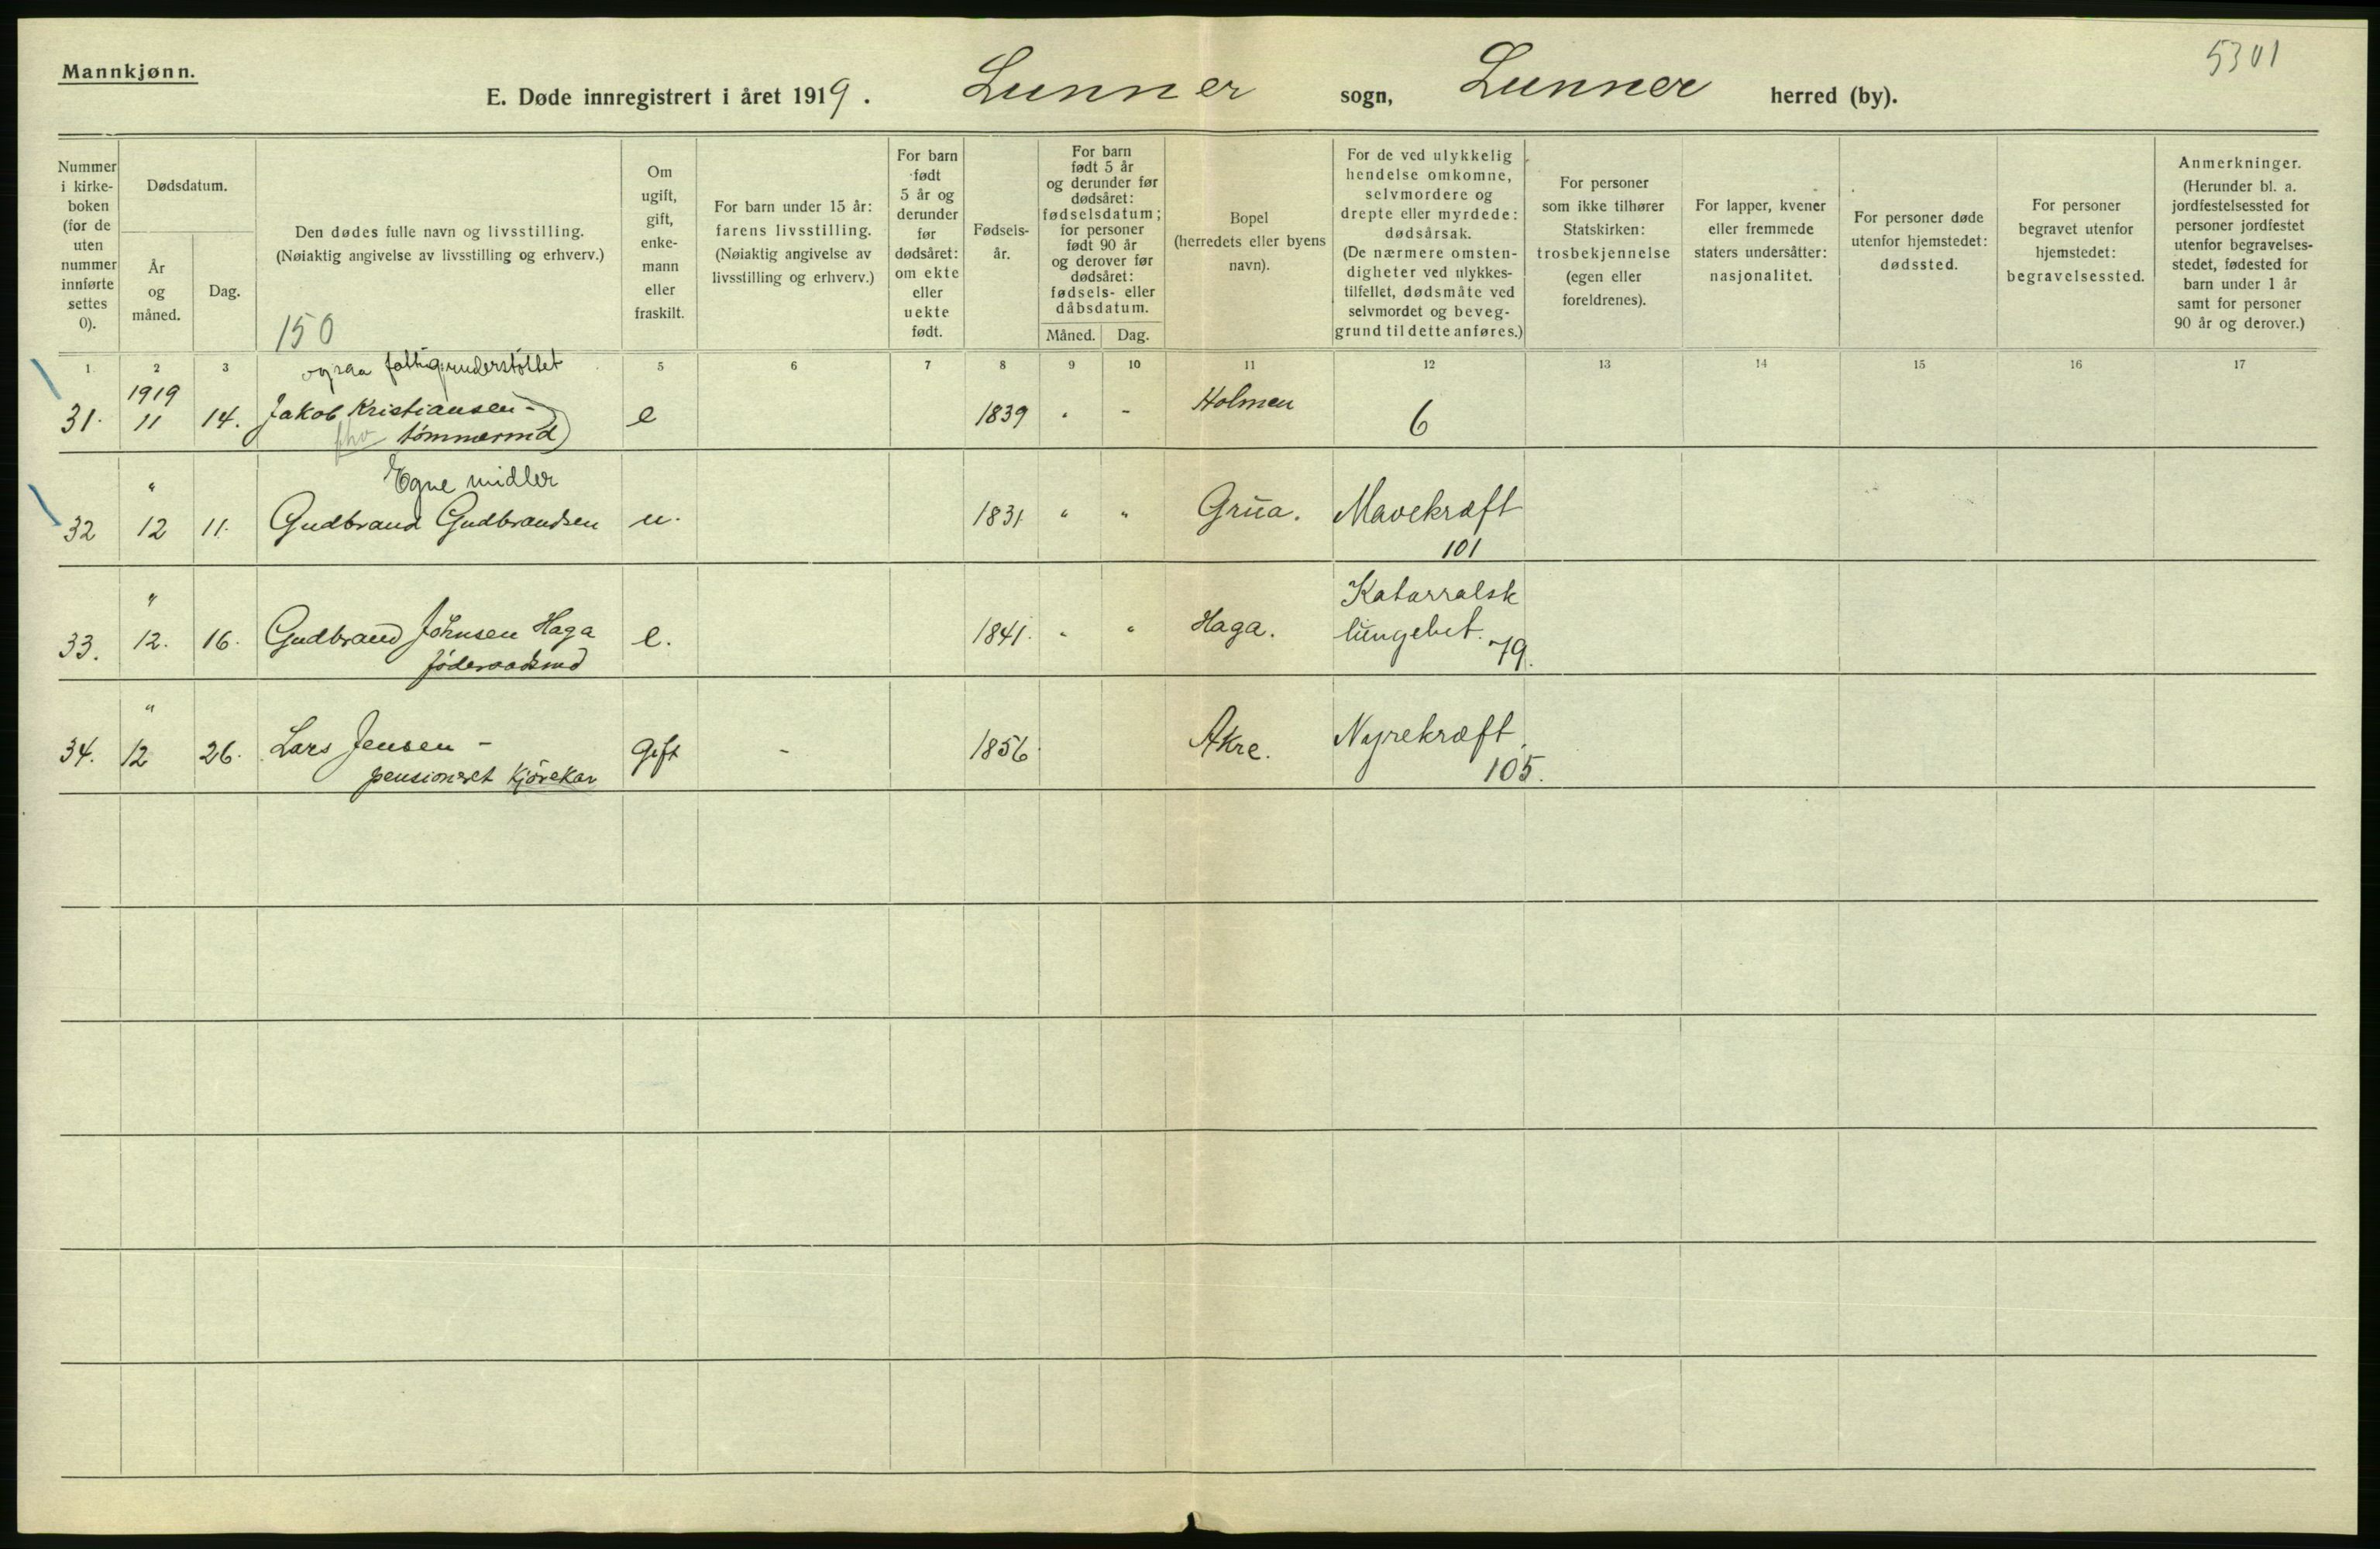 Mannkjønn.
5301
E. Døde innregistrert i året 1919. Lunner sogn, Lunner herred (by).
Nummer
i kirke-
boken
(for de
uten
nummer
innførte
settes
0).
Dødsdatum.
År
og
måned.
Dag.
Den dødes fulle navn og livsstilling.
(Nøiaktig angivelse av livsstilling og erhverv.)
150
Om
ugift,
gift,
enke-
mann
eller
fraskilt.
For barn under 15 år:
farens livsstilling.
(Nøiaktig angivelse av
livsstilling og erhverv.)
For barn
født
5 år og
derunder
før
dødsåret:
om ekte
eller
uekte
født.
Fødsels-
år.
For barn
født 5 år
og derunder før
dødsåret:
fødselsdatum;
for personer
født 90 år
og derover før
dødsåret:
fødsels- eller
dåbsdatum.
Måned. Dag.
Bopel
(herredets eller byens
navn).
For de ved ulykkelig
hendelse omkomne,
selvmordere og
drepte eller myrdede:
dødsårsak.
(De nærmere omsten-
digheter ved ulykkes-
tilfellet, dødsmåte ved
selvmordet og beveg-
grund til dette anføres.)
For personer
som ikke tilhører
Statskirken:
trosbekjennelse
(egen eller
foreldrenes).
For lapper, kvener
eller fremmede
staters undersåtter:
nasjonalitet.
For personer døde
utenfor hjemstedet:
dødssted.
For personer
begravet utenfor
hjemstedet:
begravelsessted.
Anmerkninger.
(Herunder bl. a.
jordfestelsessted for
personer jordfestet
utenfor begravelses-
stedet, fødested for
barn under 1 år
samt for personer
90 år og derover.)
1 2 3 5 6 7 8 9 10 11 12 13 14 15 16 17
ogsaa fattigunderstöttet
1919
31. 11 14. Jakob Kristiansen - e 1839 " - Holmen 6
tömmermd)
Egne midler
"
32 12 11. Gudbrand Gudbrandsen u. 1831 " " Grua. Mavekræft
101
"
Katarralsk
33. 12. 16. Gudbrand Johnsen Haga e. 1841. " " Haga. lungebet. 79.
föderaadsmd
"
34. 12 26. Lars Jensen - Gift - 1856 Akre. Nyrekræft
pensioneret Kjörekar 105.